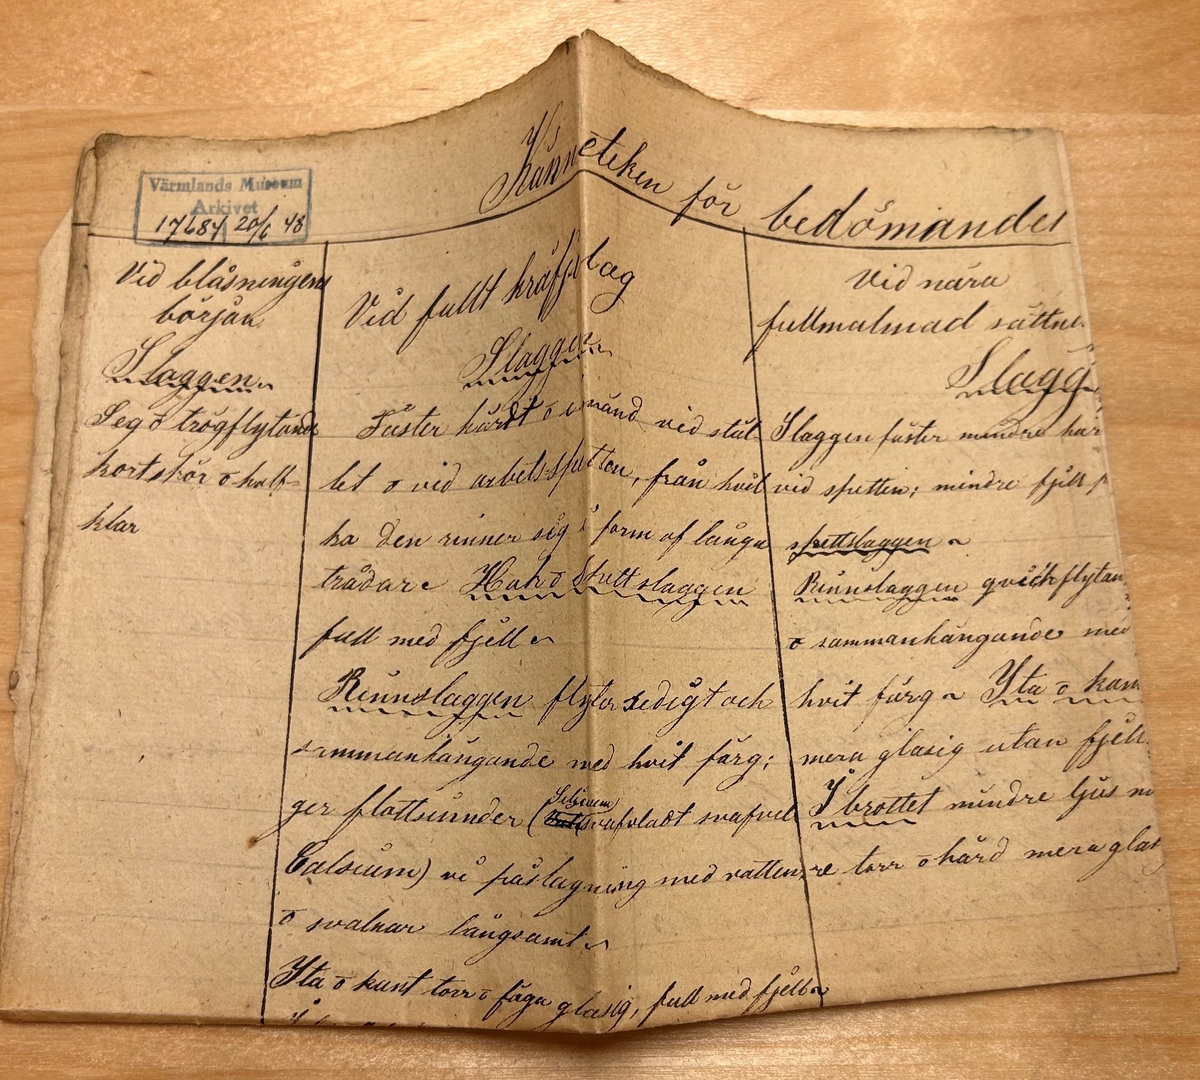 Värmlands Museum
Arkivet
17684 20/6 48
Känneteken för bedömandet
Vid blåsningens
början
Slaggen
Seg o trögflytande
kort skör o half-
klar
Vid fullt kräfslag
Slaggen
Fäster hårdt o i mänd vid stål-
let o vid arbets-spetten, från hvil
ka den rinner sig i form af långa
trådar
Hård Spettslaggen
full med fjell
Rinnslaggen flyter sedigt och
sammanhängande med hvit färg;
ger flottsunder (Seljium svafvladt svafvel
Calsium) vi påslagning med vatten
o svalnar långsamt
Yta o kant torr o föga glasig, full med fjell
Vid nära
fullmalmad sättni
Slagg
Slaggen fäster mindre hår
vid spetten; mindre fjell
spettslaggen
Rinnslaggen qvickflytan
o sammanhängande med
hvit färg Yta o kan
mera glasig utan fjell
I brottet mindre ljus
re torr o hård mera glas